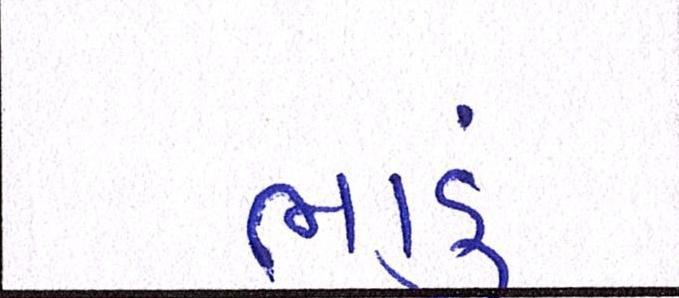 ભાડું